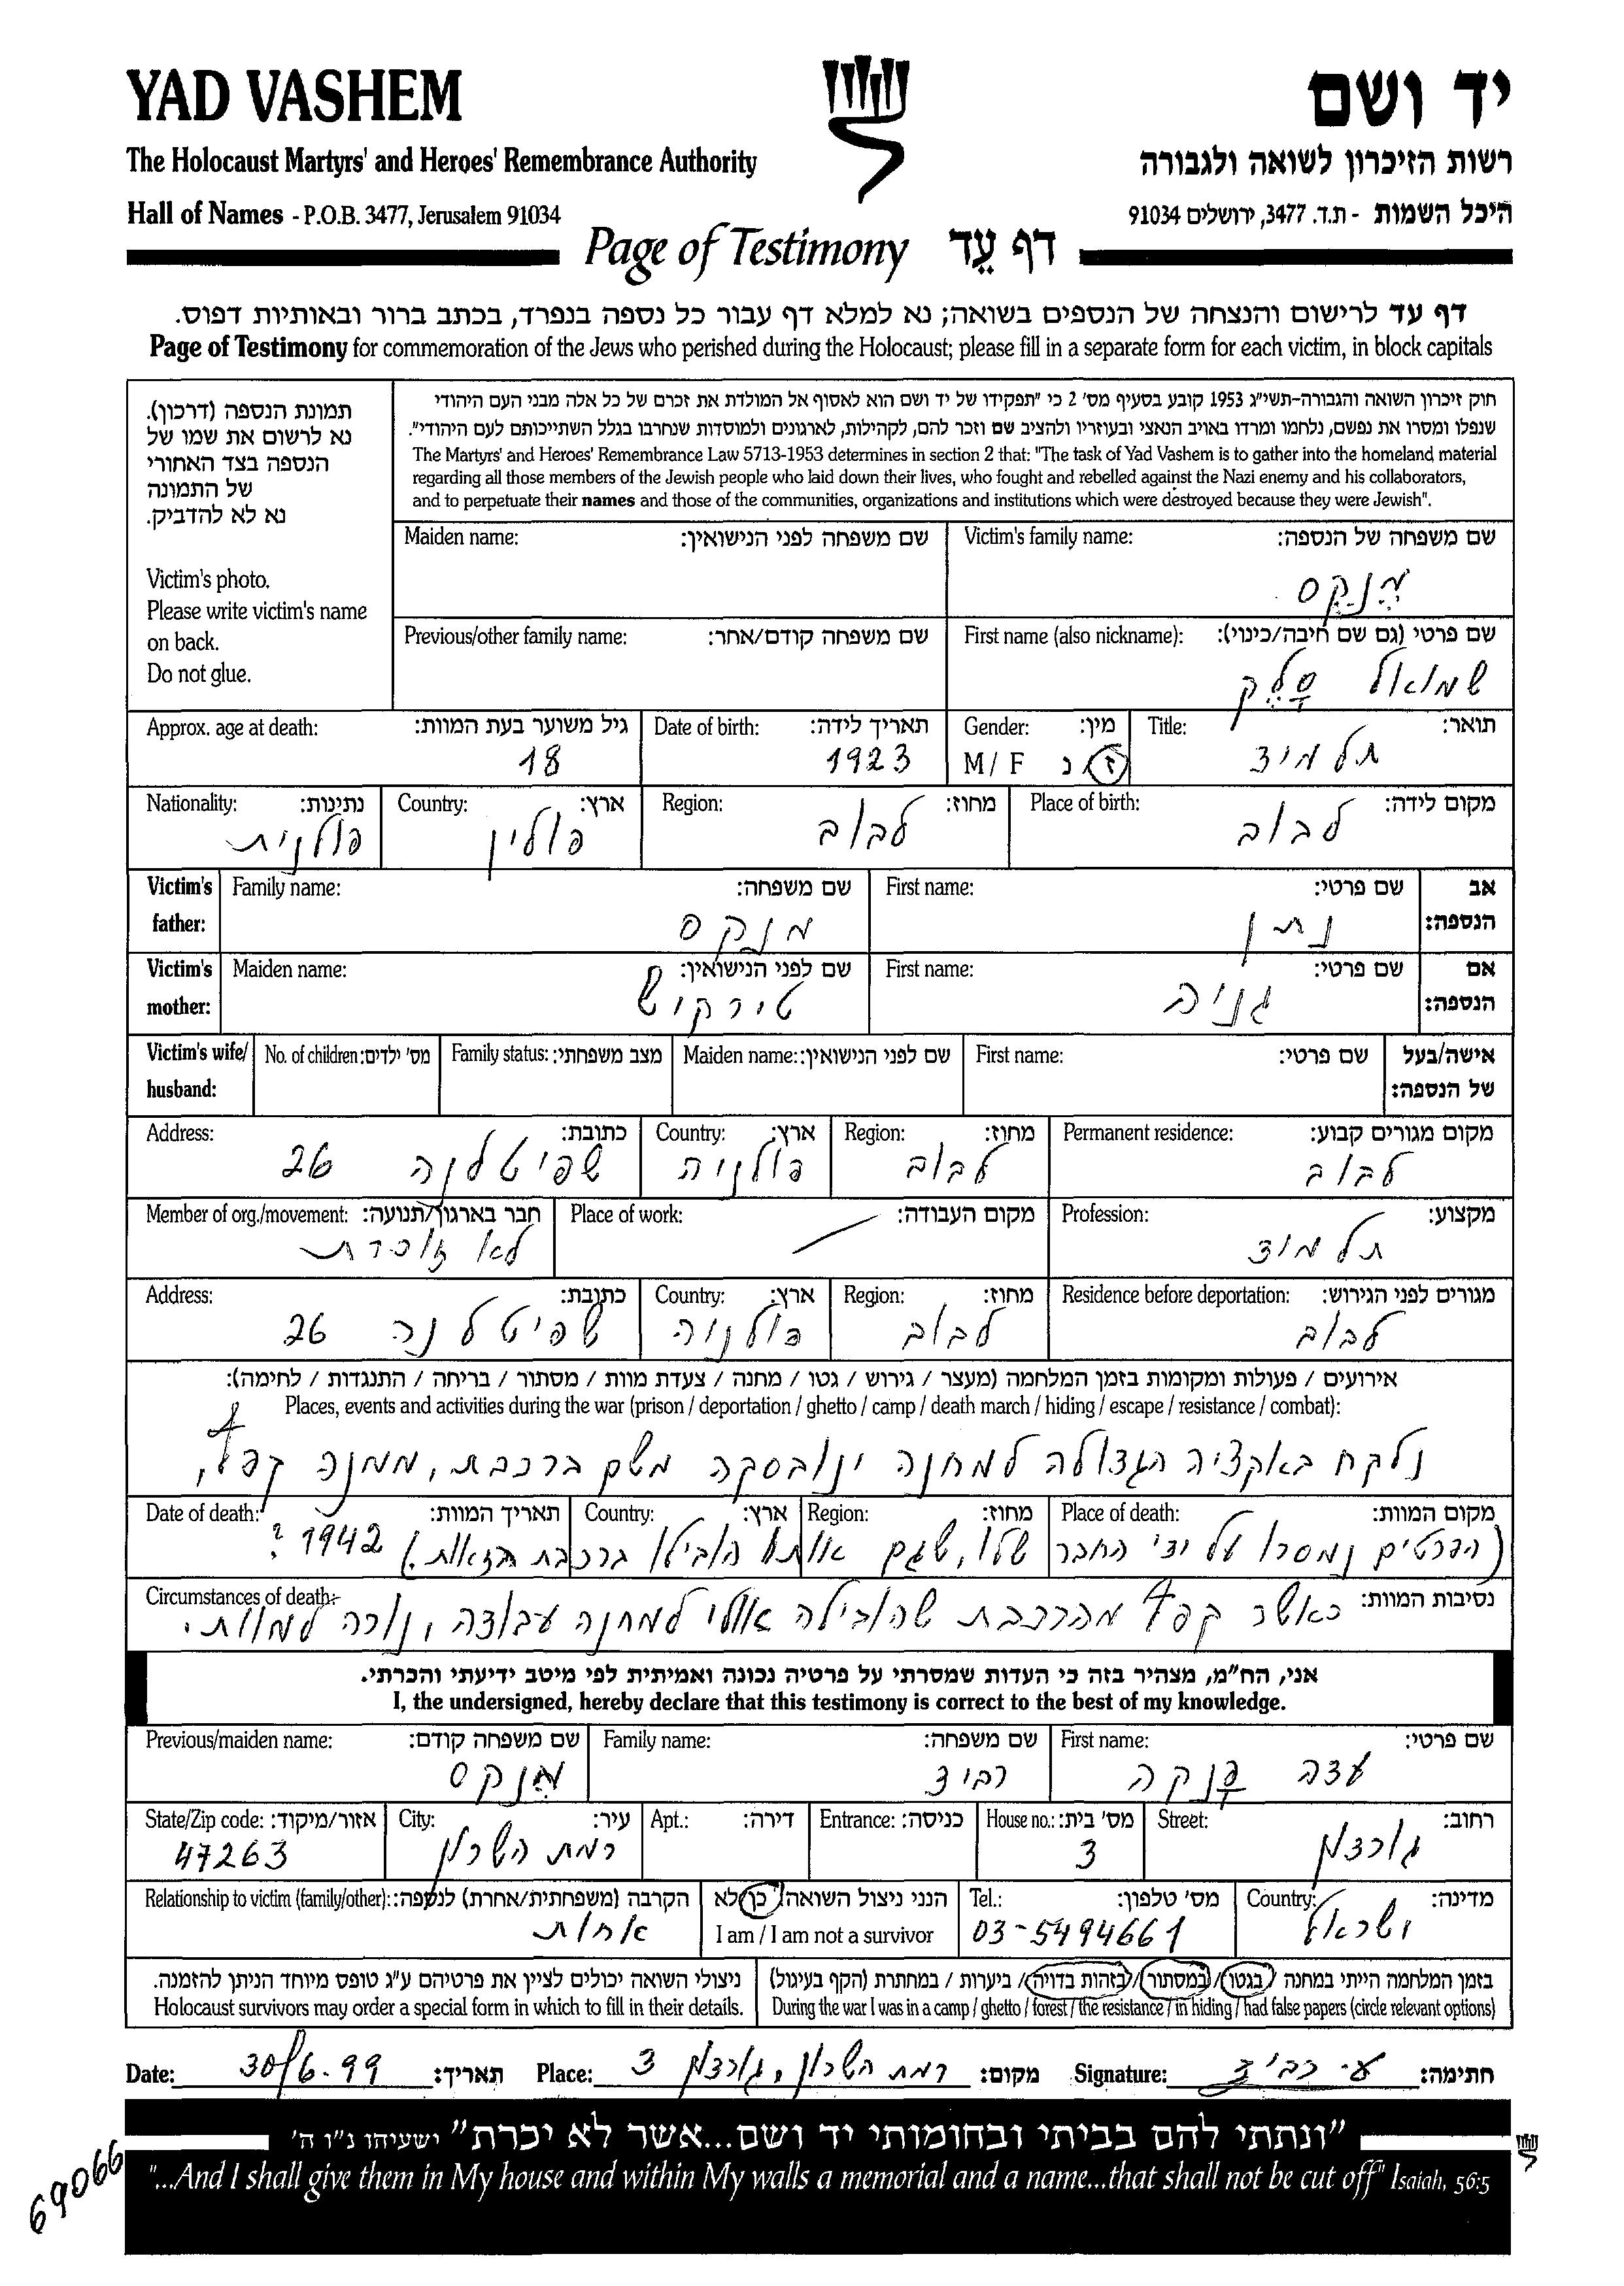 YAD VASHEM
יד ושם
The Holocaust Martyrs' and Heroes' Remembrance Authority
רשות הזיכרון לשואה ולגבורה
Hall of Names - P.O.B. 3477, Jerusalem 91034
היכל השמות - ת.ד. 3477, ירושלים 91034
Page of Testimony דף עֵד
דף עד לרישום והנצחה של הנספים בשואה; נא למלא דף עבור כל נספה בנפרד, בכתב ברור ובאותיות דפוס.
Page of Testimony for commemoration of the Jews who perished during the Holocaust; please fill in a separate form for each victim, in block capitals
תמונת הנספה (דרכון).
נא לרשום את שמו של
הנספה בצד האחורי
של התמונה
נא לא להדביק.
Victim's photo.
Please write victim's name
on back.
Do not glue.
חוק זיכרון השואה והגבורה-תשי"ג 1953 קובע בסעיף מס' 2 כי "תפקידו של יד ושם הוא לאסוף אל המולדת את זכרם של כל אלה מבני העם היהודי
שנפלו ומסרו את נפשם, נלחמו ומרדו באויב הנאצי ובעוזריו ולהציב שם וזכר להם, לקהילות, לארגונים ולמוסדות שנחרבו בגלל השתייכותם לעם היהודי".
The Martyrs' and Heroes' Remembrance Law 5713-1953 determines in section 2 that: "The task of Yad Vashem is to gather into the homeland material
regarding all those members of the Jewish people who laid down their lives, who fought and rebelled against the Nazi enemy and his collaborators,
and to perpetuate their names and those of the communities, organizations and institutions which were destroyed because they were Jewish".
Victim's family name: שם משפחה של הנספה:
מנקס
Maiden name: שם משפחה לפני הנישואין:
First name (also nickname): שם פרטי (גם שם חיבה/כינוי):
שמואל סלק
Previous/other family name: שם משפחה קודם/אחר:
Title: תואר:
תלמיד
Gender: מין:
M / F ז נ
Date of birth: תאריך לידה:
1923
Approx. age at death: גיל משוער בעת המוות:
18
Place of birth: מקום לידה:
לבוב
Region: מחוז:
לבוב
Country: ארץ:
פולין
Nationality: נתינות:
פולנית
Victim's father: אב הנספה:
First name: שם פרטי:
נתן
Family name: שם משפחה:
מנקס
Victim's mother: אם הנספה:
First name: שם פרטי:
גניה
Maiden name: שם לפני הנישואין:
טירקיש
Victim's wife/ husband: אישה/בעל של הנספה:
First name: שם פרטי:
Maiden name: שם לפני הנישואין:
Family status: מצב משפחתי:
No. of children: מס' ילדים:
Permanent residence: מקום מגורים קבוע:
לבוב
Region: מחוז:
לבוב
Country: ארץ:
פולנית
Address: כתובת:
שפיטלנה 26
Profession: מקצוע:
תלמיד
Place of work: מקום העבודה:
Member of org./movement: חבר בארגון/תנועה:
לא זוכרת
Residence before deportation: מגורים לפני הגירוש:
לבוב
Region: מחוז:
לבוב
Country: ארץ:
פולניה
Address: כתובת:
שפיטלנה 26
אירועים / פעולות ומקומות בזמן המלחמה (מעצר / גירוש / גטו / מחנה / צעדת מוות / מסתור / בריחה / התנגדות / לחימה):
Places, events and activities during the war (prison / deportation / ghetto / camp / death march / hiding / escape / resistance / combat):
נלקח באקציה הגדולה למחנה ינובסקה משם ברכבת, ממנה קפץ,
Place of death: מקום המוות:
Region: מחוז:
Country: ארץ:
Date of death: תאריך המוות:
(הפרטים נמסרו על ידי החבר שלו, שגם אותו הובילו ברכבת הזאת.) 1942 ?
Circumstances of death: נסיבות המוות:
כאשר קפץ מהרכבת שהובילה אולי למחנה עבודה, נורה למוות.
אני, הח"מ, מצהיר בזה כי העדות שמסרתי על פרטיה נכונה ואמיתית לפי מיטב ידיעתי והכרתי.
I, the undersigned, hereby declare that this testimony is correct to the best of my knowledge.
First name: שם פרטי:
עדה פנקה
Family name: שם משפחה:
רביד
Previous/maiden name: שם משפחה קודם:
מנקס
Street: רחוב:
גורדון
House no.: מס' בית:
3
Entrance: כניסה:
Apt.: דירה:
City: עיר:
רמת השרון
State/Zip code: אזור/מיקוד:
47263
Country: מדינה:
ישראל
Tel.: מס' טלפון:
03-5494661
הנני ניצול השואה: כן לא
I am / I am not a survivor
Relationship to victim (family/other): הקרבה (משפחתית/אחרת) לנספה:
אחות
בזמן המלחמה הייתי במחנה / בגטו / במסתור / בזהות בדויה / ביערות / במחתרת (הקף בעיגול)
During the war I was in a camp / ghetto / forest / the resistance / in hiding / had false papers (circle relevant options)
ניצולי השואה יכולים לציין את פרטיהם ע"ג טופס מיוחד הניתן להזמנה.
Holocaust survivors may order a special form in which to fill in their details.
Date: 30/6.99 תאריך: Place: רמת השרון, גורדון 3 מקום: Signature: ע. רביד חתימה:
"ונתתי להם בביתי ובחומותי יד ושם...אשר לא יכרת" ישעיהו נ"ו ה'
"...And I shall give them in My house and within My walls a memorial and a name...that shall not be cut off" Isaiah, 56:5
69066